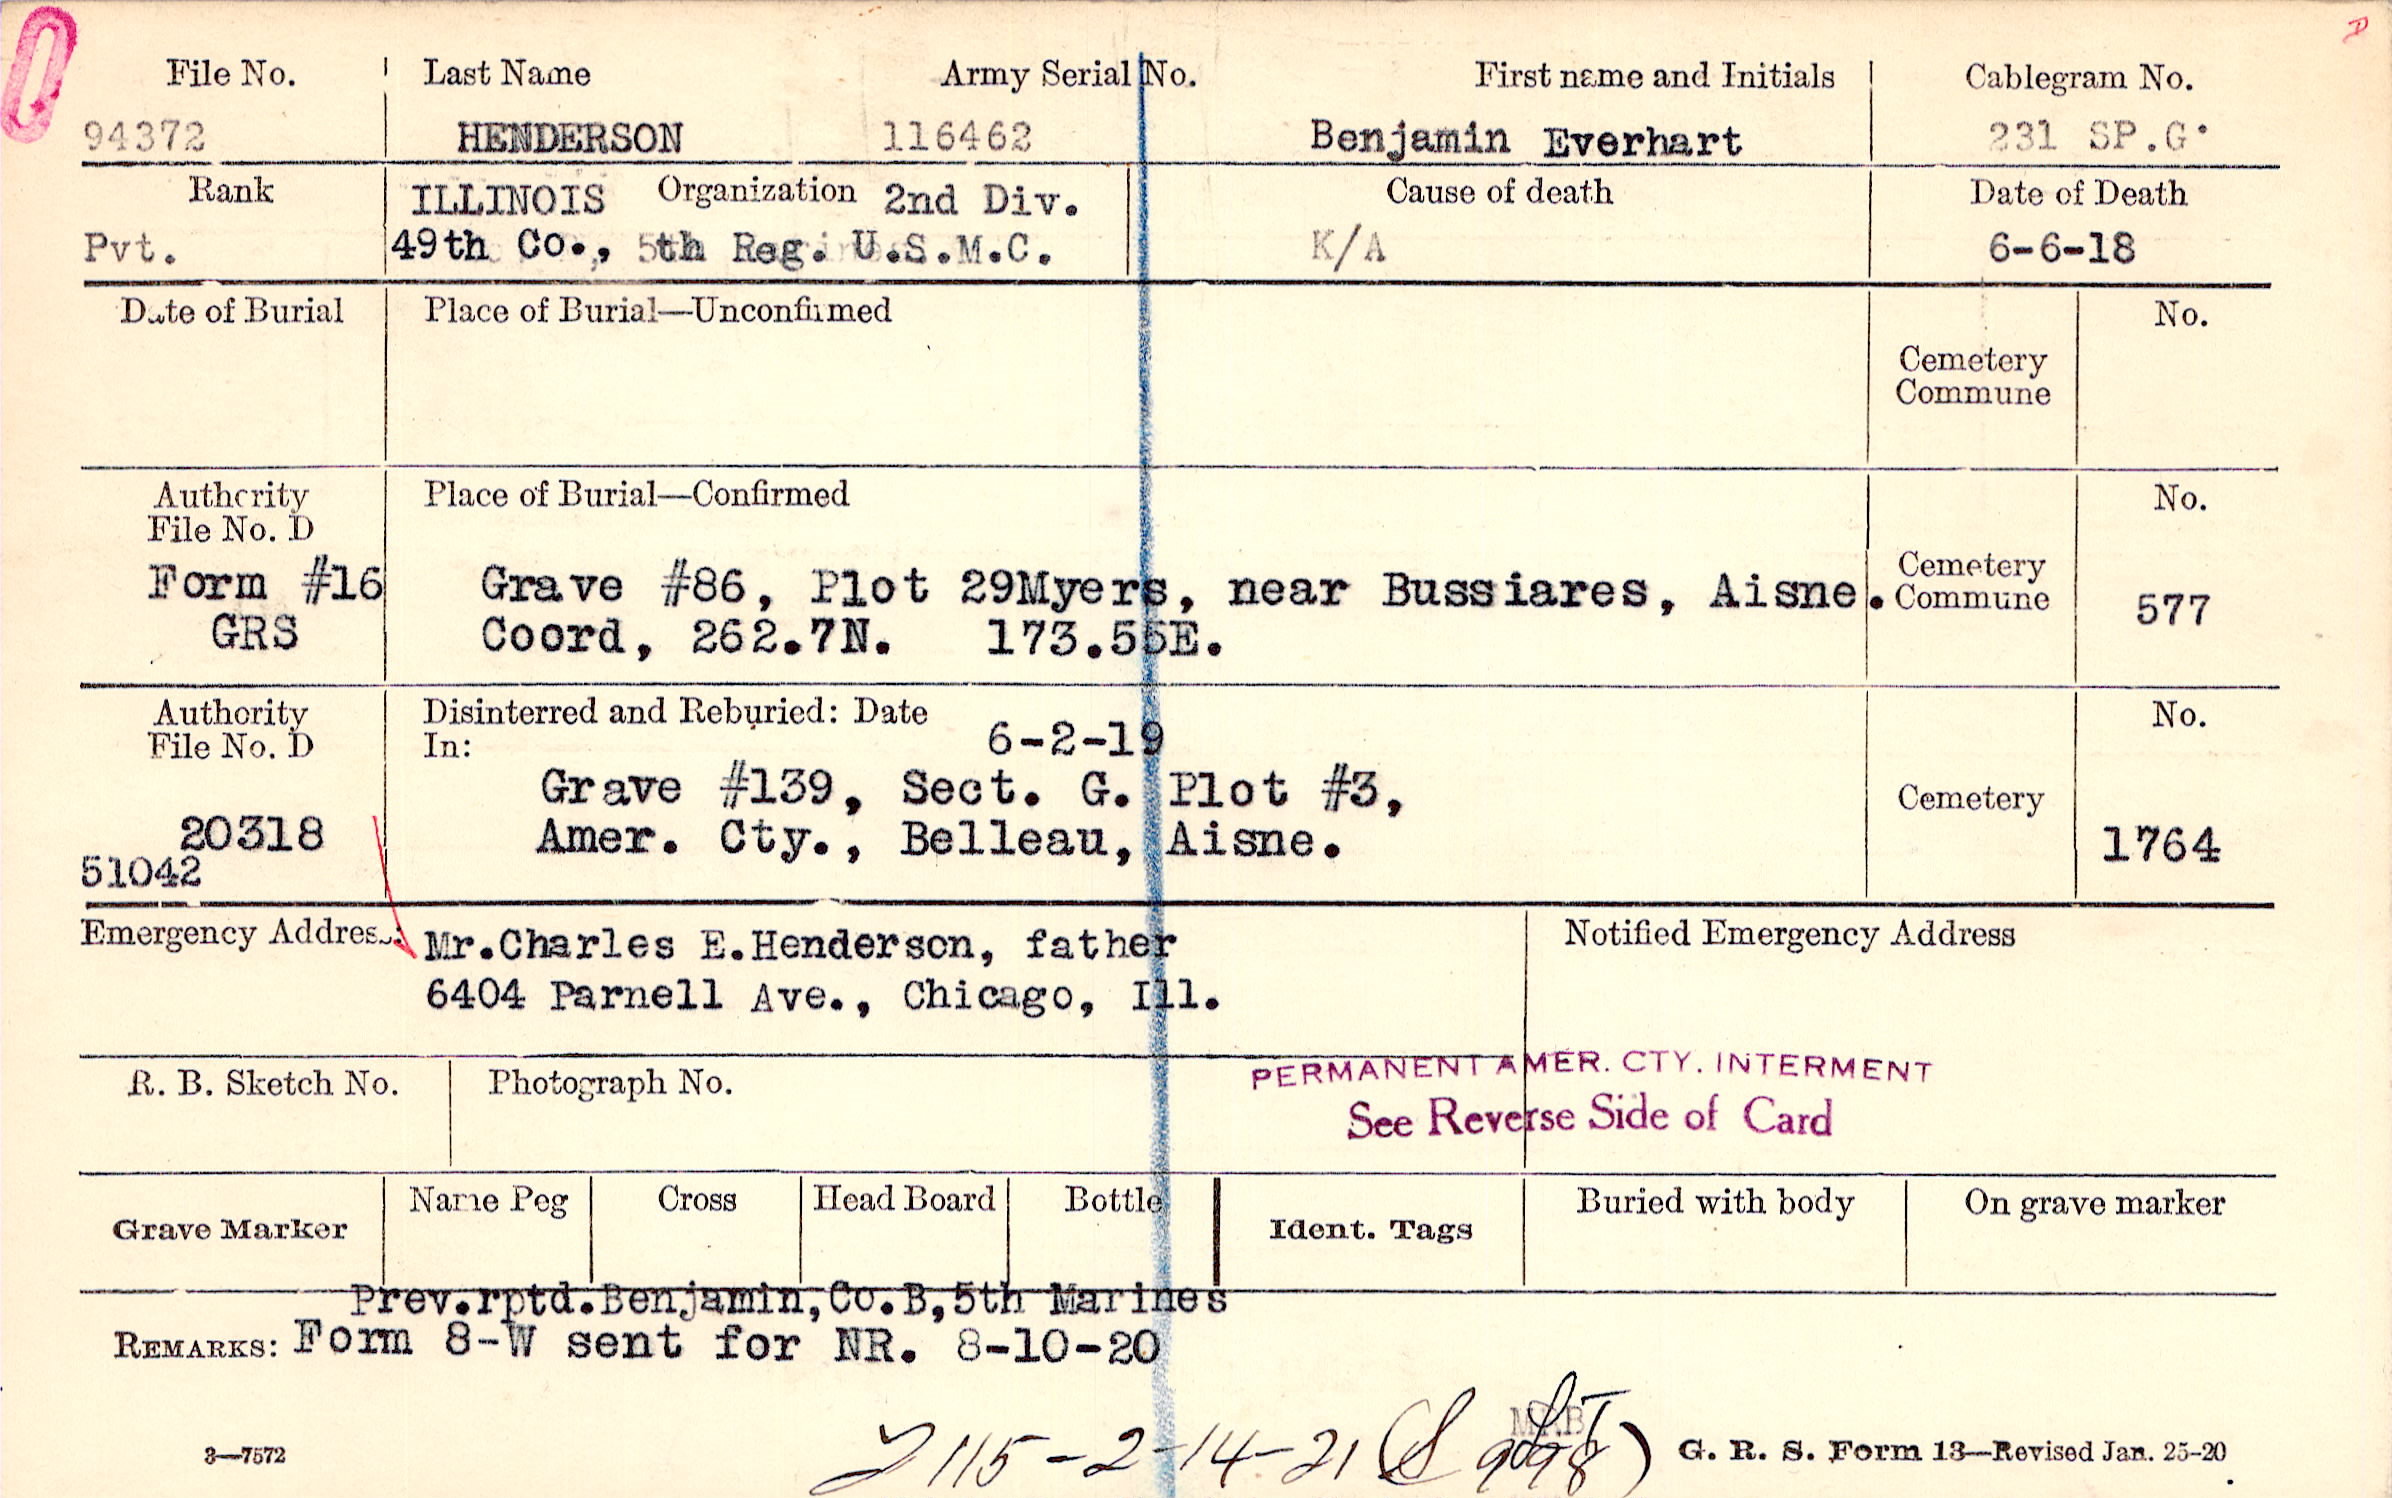 File No. Last Name Army Serial No. First name and Initials Cablegram No.
94372 HENDERSON 116462 Benjamin Everhart 231 SP.G.
Rank ILLINOIS Organization 2nd Div. Cause of death Date of Death
Pvt. 49th Co., 5th Reg. U.S.M.C. K/A 6-6-18
Date of Burial Place of Burial—Unconfirmed No.
Cemetery
Commune
Authority Place of Burial—Confirmed No.
File No. D
Form #16 Grave #86, Plot 29Myers, near Bussiares, Aisne. Cemetery Commune 577
GRS Coord, 262.7N. 173.55E.
Authority Disinterred and Reburied: Date No.
File No. D In: 6-2-19
Grave #139, Sect. G. Plot #3, Cemetery
20318 Amer. Cty., Belleau, Aisne. 1764
51042
Emergency Address: Mr.Charles E.Henderson, father Notified Emergency Address
6404 Parnell Ave., Chicago, Ill.
R. B. Sketch No. Photograph No. PERMANENT AMER. CTY. INTERMENT
See Reverse Side of Card
Grave Marker Name Peg Cross Head Board Bottle Ident. Tags Buried with body On grave marker
Prev.rptd.Benjamin,Co.B,5th Marines
REMARKS: Form 8-W sent for NR. 8-10-20
115-2-14-21
3—7572 G. R. S. Form 13—Revised Jan. 25-20